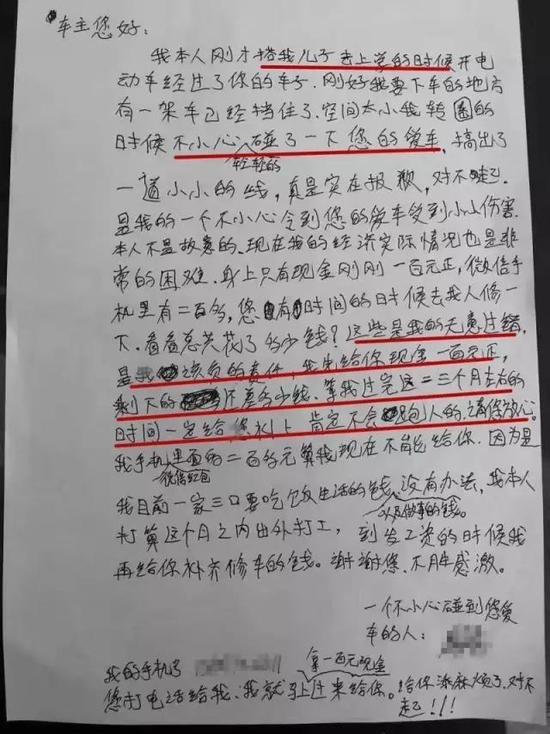 车主您好:
我本人刚才搭我儿子去上学的时候开电
动车经过了你的车子.刚好我要下车的地方
有一架车已经挡住了.空间太小我转圈的
时候不小心碰了一下您的爱车,搞出了
轻轻的
一道小小的线,真是实在报歉,对不起.
是我的一个不小心令到您的爱车受到小小伤害.
本人不是故意的.现在我的经济实际情况也是非
常的困难.身上只有现金刚刚一百元正,微信手
机里有二百多,您有时间的日时候去找人修一
下.看看总共花了多少钱?这些是我的无意过错,
是我该负的责任,我先给你现金一百元正,
剩下的还差多少钱.等我过完这二三个月左右的
时间一定给您补上肯定不会跑人的.请你放心。
我手机里面的二百多元等我现在不能给你.因为是
微信红包
我目前一家三口要吃饭生活的钱,没有办法,我本人
以及做事的钱。
打算这个月之内出外打工,到发工资的时候我
再给你补齐修车的钱。谢谢您.不胜感激。
一个不小心碰到您爱
车的人:
我的手机号
拿一百元现金
您打电话给我.我就马上过来给你。给你添麻烦了.对不
起!!!